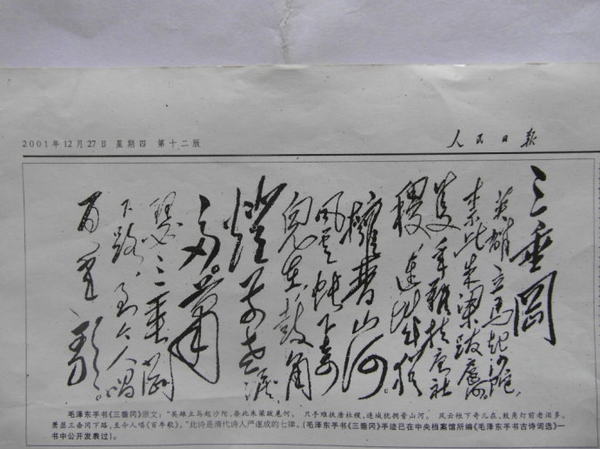 2001年12月27日 星期四 第十二版
人民日报
三垂岡
英雄立马起沙陀,
奈此朱梁跋扈何。
隻手難扶唐社
稷,連城猶
擁晉山河。
風雲帳下奇
兒在,鼓角
燈前老淚
多。蕭
瑟三垂岡
下路,至今人唱
百年歌。
毛泽东手书《三垂冈》原文:“英雄立马起沙陀,奈此朱梁跋扈何。 只手难扶唐社稷,连城犹拥晋山河。 风云帐下奇儿在,鼓角灯前老泪多。
萧瑟三垂冈下路,至今人唱《百年歌》。”此诗是清代诗人严遂成的七律。(毛泽东手书《三垂冈》手迹已在中央档案馆所编《毛泽东手书古诗词选》一
书中公开发表过)。